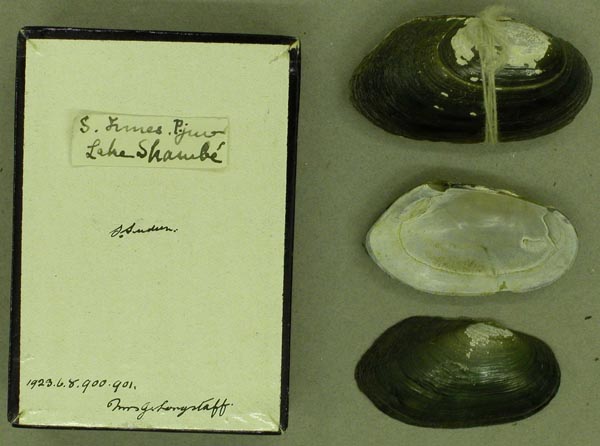 Lake Shambé
S. Sudan.
1923.6.8.900-901.
Mrs G. Longstaff.